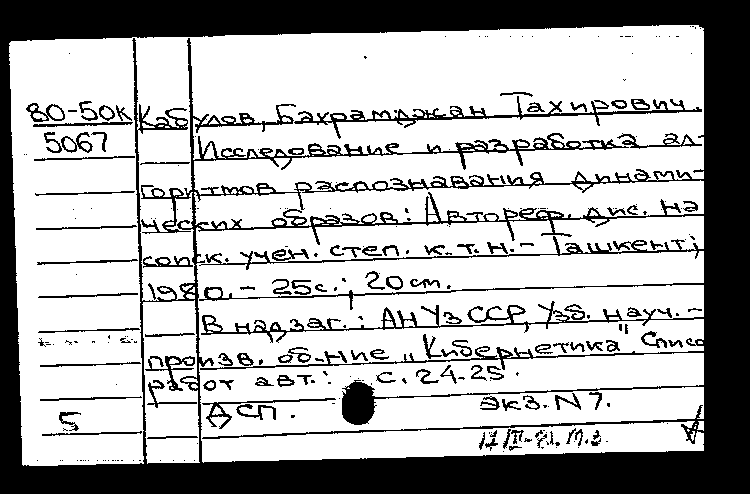 80-50к Кабулов, Бахрамджан Тахирович.
5067
Исследование и разработка ал-
горитмов распознавания динами-
ческих образов: Автореф. дис. на
соиск. учен. степ. к.т.н. - Ташкент;
1980. - 25с.; 20 см.
В надзаг.: АН УзССР, Узб. науч.-
произв. об-ние „Кибернетика". Списо
работ авт.: с. 24-25.
5 ДСП. Экз. N 7.